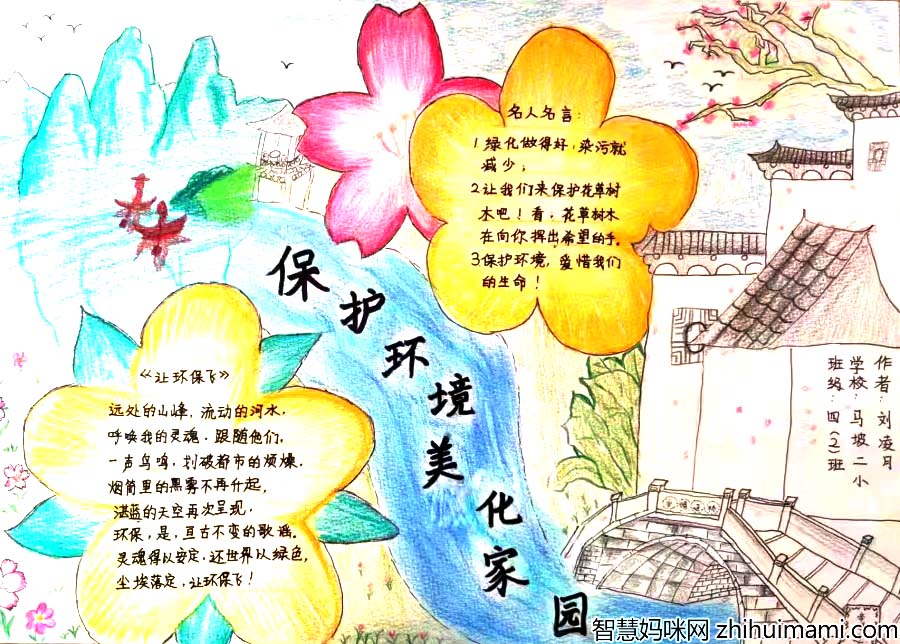 保护环境美化家园
名人名言：
1绿化做得好，染污就
减少；
2让我们来保护花草树
木吧！看，花草树木
在向你挥出希望的手。
3保护环境，爱惜我们
的生命！
《让环保飞》
远处的山峰，流动的河水，
呼唤我的灵魂，跟随他们，
一声鸟鸣，划破都市的烦燥，
烟筒里的黑雾不再升起，
湛蓝的天空再次呈现，
环保，是，亘古不变的歌谣。
灵魂得以安定，还世界以绿色，
尘埃落定，让环保飞！
作者：刘凌月
学校：马坡二小
班级：四（2）班
智慧妈咪网 zhihuimami.com